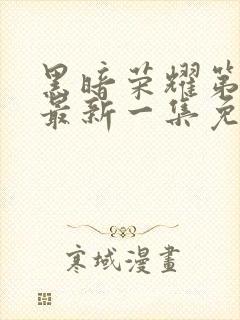 黑暗荣耀第
最新一集免
寒域漫畫